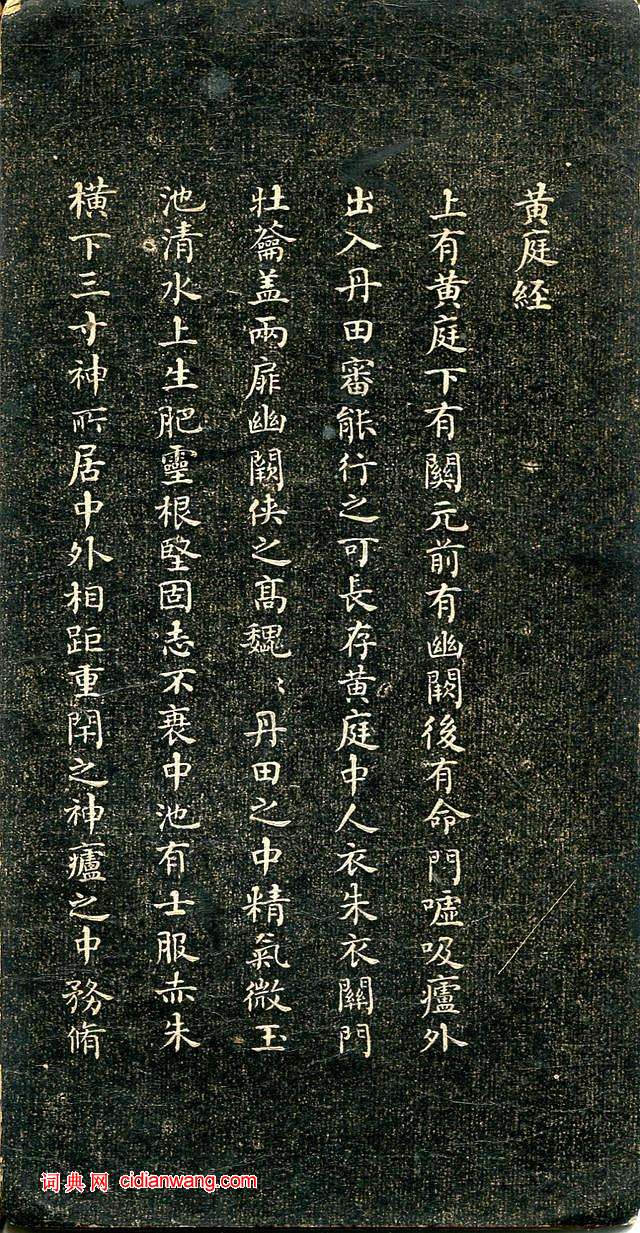 黄庭経
上有黄庭下有關元前有幽闕後有命門噓吸廬外
出入丹田審能行之可長存黄庭中人衣朱衣關門
壮籥盖兩扉幽闕侠之髙魏〻丹田之中精氣微玉
池清水上生肥靈根堅固志不衰中池有士服赤朱
横下三寸神所居中外相距重閇之神廬之中務脩
词典网 cidianwang.com